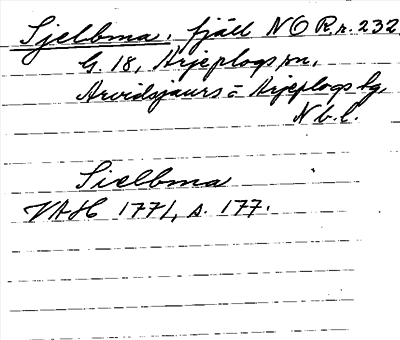 Sjelbma, fjäll NO R.r. 232
G. 18, Arjeplogs sn,
Arvidsjaurs o Arjeplogs tg,
Nb. l.
Sielbma
VAH 177/, s. 177.